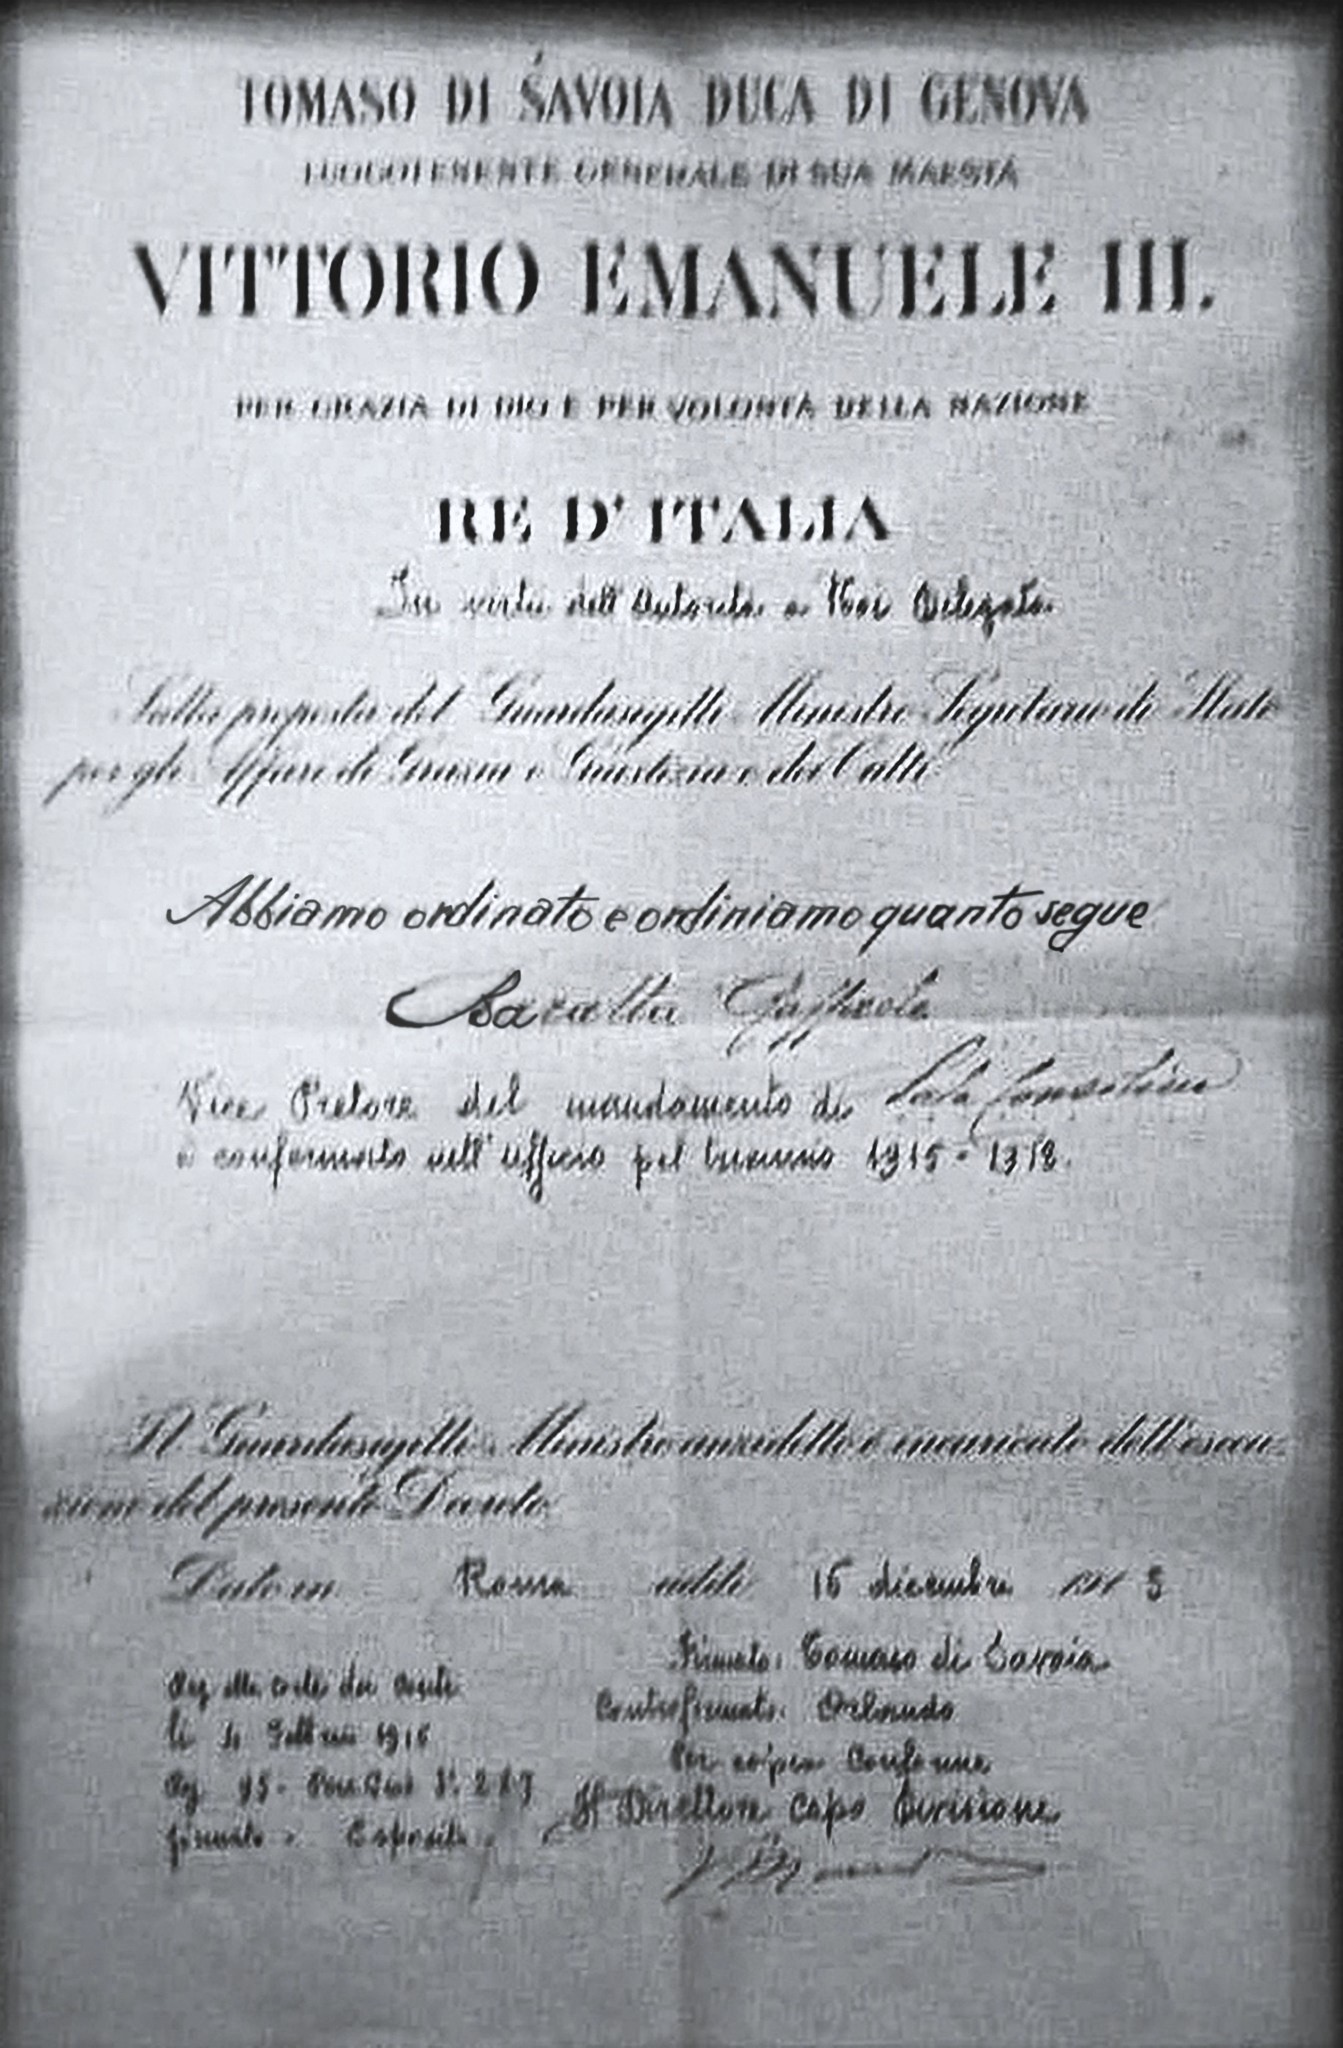 TOMASO DI SAVOIA DUCA DI GENOVA
LUOGOTENENTE GENERALE DI SUA MAESTÀ
VITTORIO EMANUELE III.
PER GRAZIA DI DIO E PER VOLONTÀ DELLA NAZIONE
RE D'ITALIA
In virtù dell'Autorità a Noi Delegata
Sulla proposta del Guardasigilli Ministro Segretario di Stato
per gli Affari di Grazia e Giustizia e dei Culti
Abbiamo ordinato e ordiniamo quanto segue
Vice Pretore del mandamento di Sala Consilina
è confermato nell'ufficio pel triennio 1915-1918.
Il Guardasigilli Ministro anzidetto è incaricato dell'esecu-
zione del presente Decreto
Dato in Roma addì 16 dicembre 191 5
Firmato: Tomaso di Savoia
Controfirmato: Orlando
Per copia Conforme
Il Direttore Capo Divisione
Reg alla corte dei conti
li 4 Febbraio 1916
Reg 95 - 287
firmato: Esposito